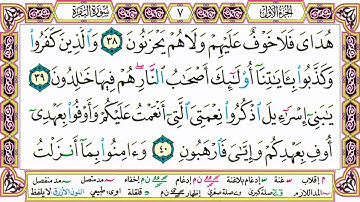 الجزء الأول ٧ سورة البقرة
هُدَايَ فَلَا خَوْفٌ عَلَيْهِمْ وَلَا هُمْ يَحْزَنُونَ ٣٨ وَالَّذِينَ كَفَرُوا
وَكَذَّبُوا بِـَٔايَٰتِنَا أُولَٰئِكَ أَصْحَابُ النَّارِ هُمْ فِيهَا خَالِدُونَ ٣٩
يَٰبَنِي إِسْرَٰٓءِيلَ اذْكُرُوا نِعْمَتِيَ الَّتِي أَنْعَمْتُ عَلَيْكُمْ وَأَوْفُوا بِعَهْدِي
أُوفِ بِعَهْدِكُمْ وَإِيَّٰيَ فَارْهَبُونِ ٤٠ وَءَامِنُوا بِمَا أَنزَلْتُ